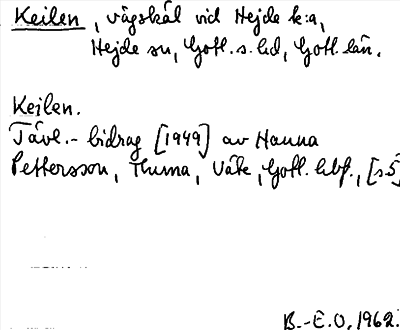 Keilen, vägskäl vid Hejde k:a,
Hejde sn, Gotl. s. hd, Gotl. län.
Keilen.
Tävl.- bidrag [1949] av Hanna
Pettersson, Thuma, Väte, Gotl. hbf., [s.5]
B.-E.O, 1962.